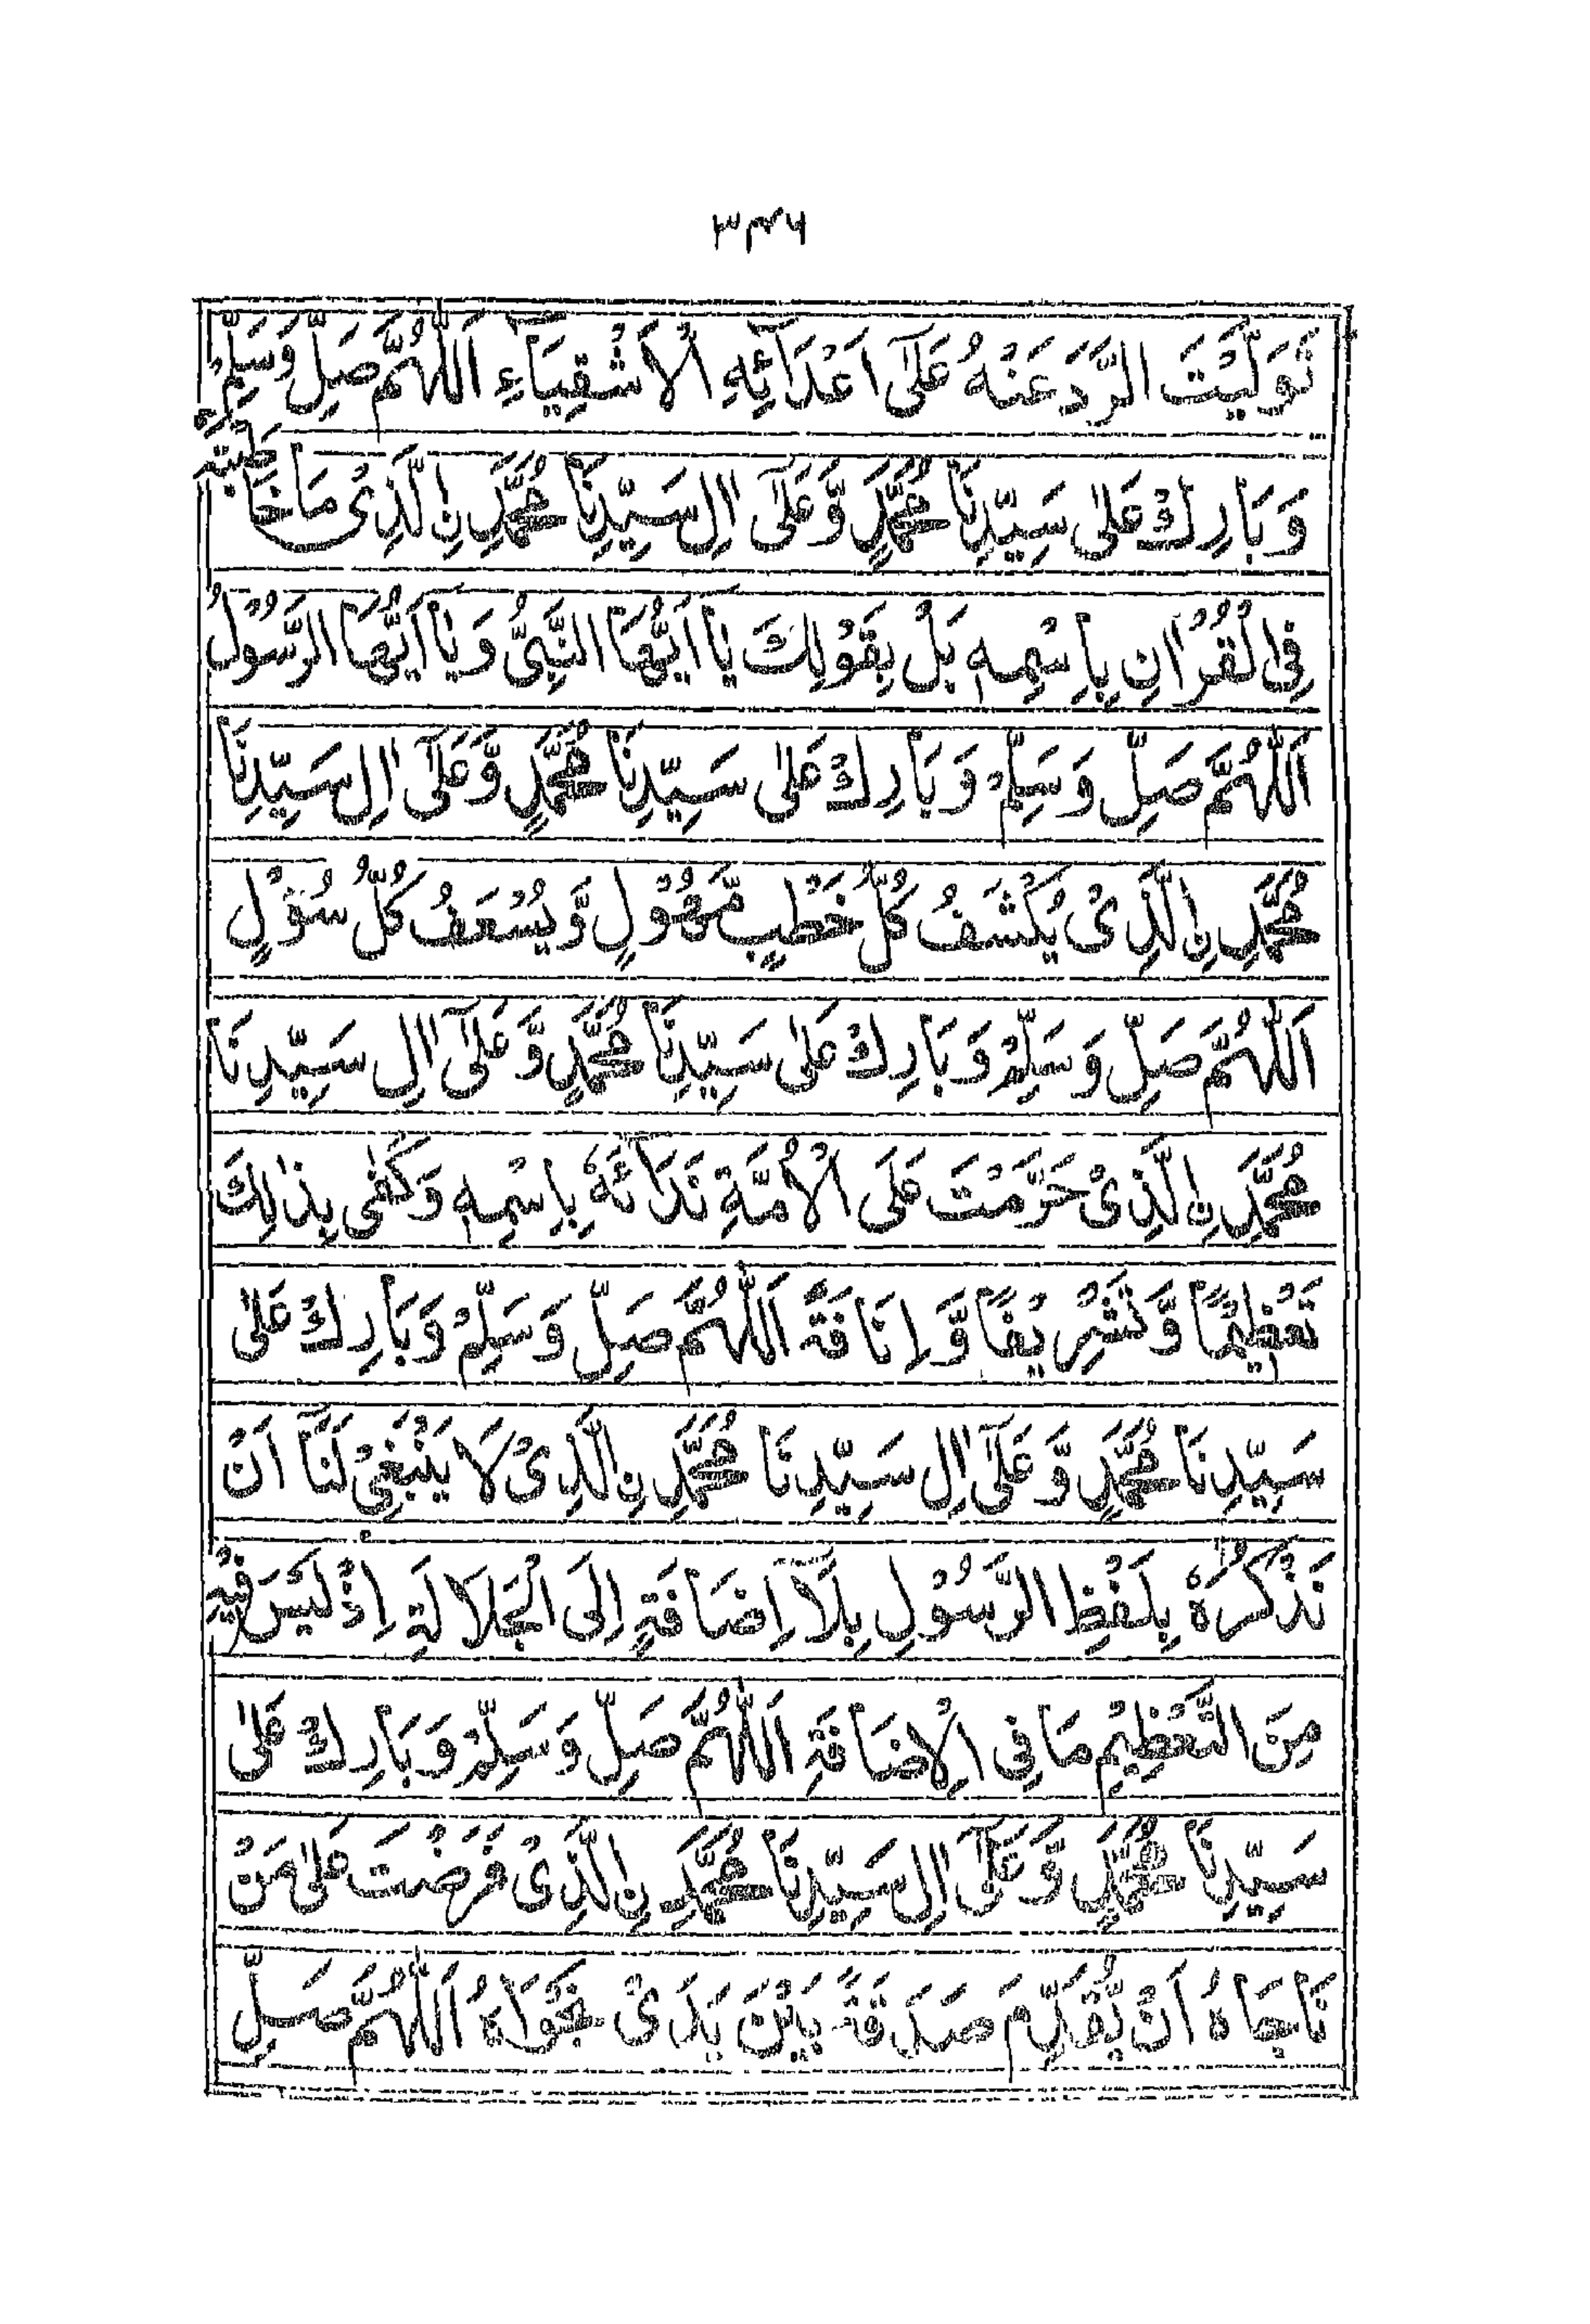 ۳۴۶
تَوَلَّيْتَ الرَّدَّ عَنْهُ عَلٰٓى اَعْدَآئِهِ الْاَشْقِيَآءِ اَللّٰهُمَّ صَلِّ وَسَلِّمْ
وَبَارِكْ عَلٰى سَيِّدِنَا مُحَمَّدٍ وَّعَلٰٓى اٰلِ سَيِّدِنَا مُحَمَّدِ نِ الَّذِىْ مَا خَاطَبْتَهٗ
فِى الْقُرْاٰنِ بِاِسْمِهٖ بَلْ بِقَوْلِكَ يٰٓا اَيُّهَا النَّبِىُّ وَيٰٓا اَيُّهَا الرَّسُوْلُ
اَللّٰهُمَّ صَلِّ وَسَلِّمْ وَبَارِكْ عَلٰى سَيِّدِنَا مُحَمَّدٍ وَّعَلٰٓى اٰلِ سَيِّدِنَا
مُحَمَّدِ نِ الَّذِىْ يُكْشَفُ كُلُّ خَطْبٍ مَّهُوْلٍ وَّيُسْعَفُ كُلُّ سُؤْلٍ
اَللّٰهُمَّ صَلِّ وَسَلِّمْ وَبَارِكْ عَلٰى سَيِّدِنَا مُحَمَّدٍ وَّعَلٰٓى اٰلِ سَيِّدِنَا
مُحَمَّدِ نِ الَّذِىْ حَرَّمْتَ عَلَى الْاُمَّةِ نَدَآئَهٗ بِاِسْمِهٖ وَكَفٰى بِذٰلِكَ
تَعْظِيْمًا وَّتَشْرِيْفًا وَّاِنَافَةً اَللّٰهُمَّ صَلِّ وَسَلِّمْ وَبَارِكْ عَلٰى
سَيِّدِنَا مُحَمَّدٍ وَّعَلٰٓى اٰلِ سَيِّدِنَا مُحَمَّدِ نِ الَّذِىْ لَا يَنْبَغِىْ لَنَآ اَنْ
نَذْكُرَهٗ بِلَفْظِ الرَّسُوْلِ بِلَآ اِضَافَةٍ اِلَى الْجَلَالَةِ اِذْ لَيْسَ فِيْهِ
مِنَ التَّعْظِيْمِ مَا فِى الْاِضَافَةِ اَللّٰهُمَّ صَلِّ وَسَلِّمْ وَبَارِكْ عَلٰى
سَيِّدِنَا مُحَمَّدٍ وَّعَلٰٓى اٰلِ سَيِّدِنَا مُحَمَّدِ نِ الَّذِىْ فَرَضْتَ عَلٰى مَنْ
نَاجَاهُ اَنْ يُّقَدِّمَ صَدَقَةً بَيْنَ يَدَىْ نَجْوَاهُ اَللّٰهُمَّ صَلِّ